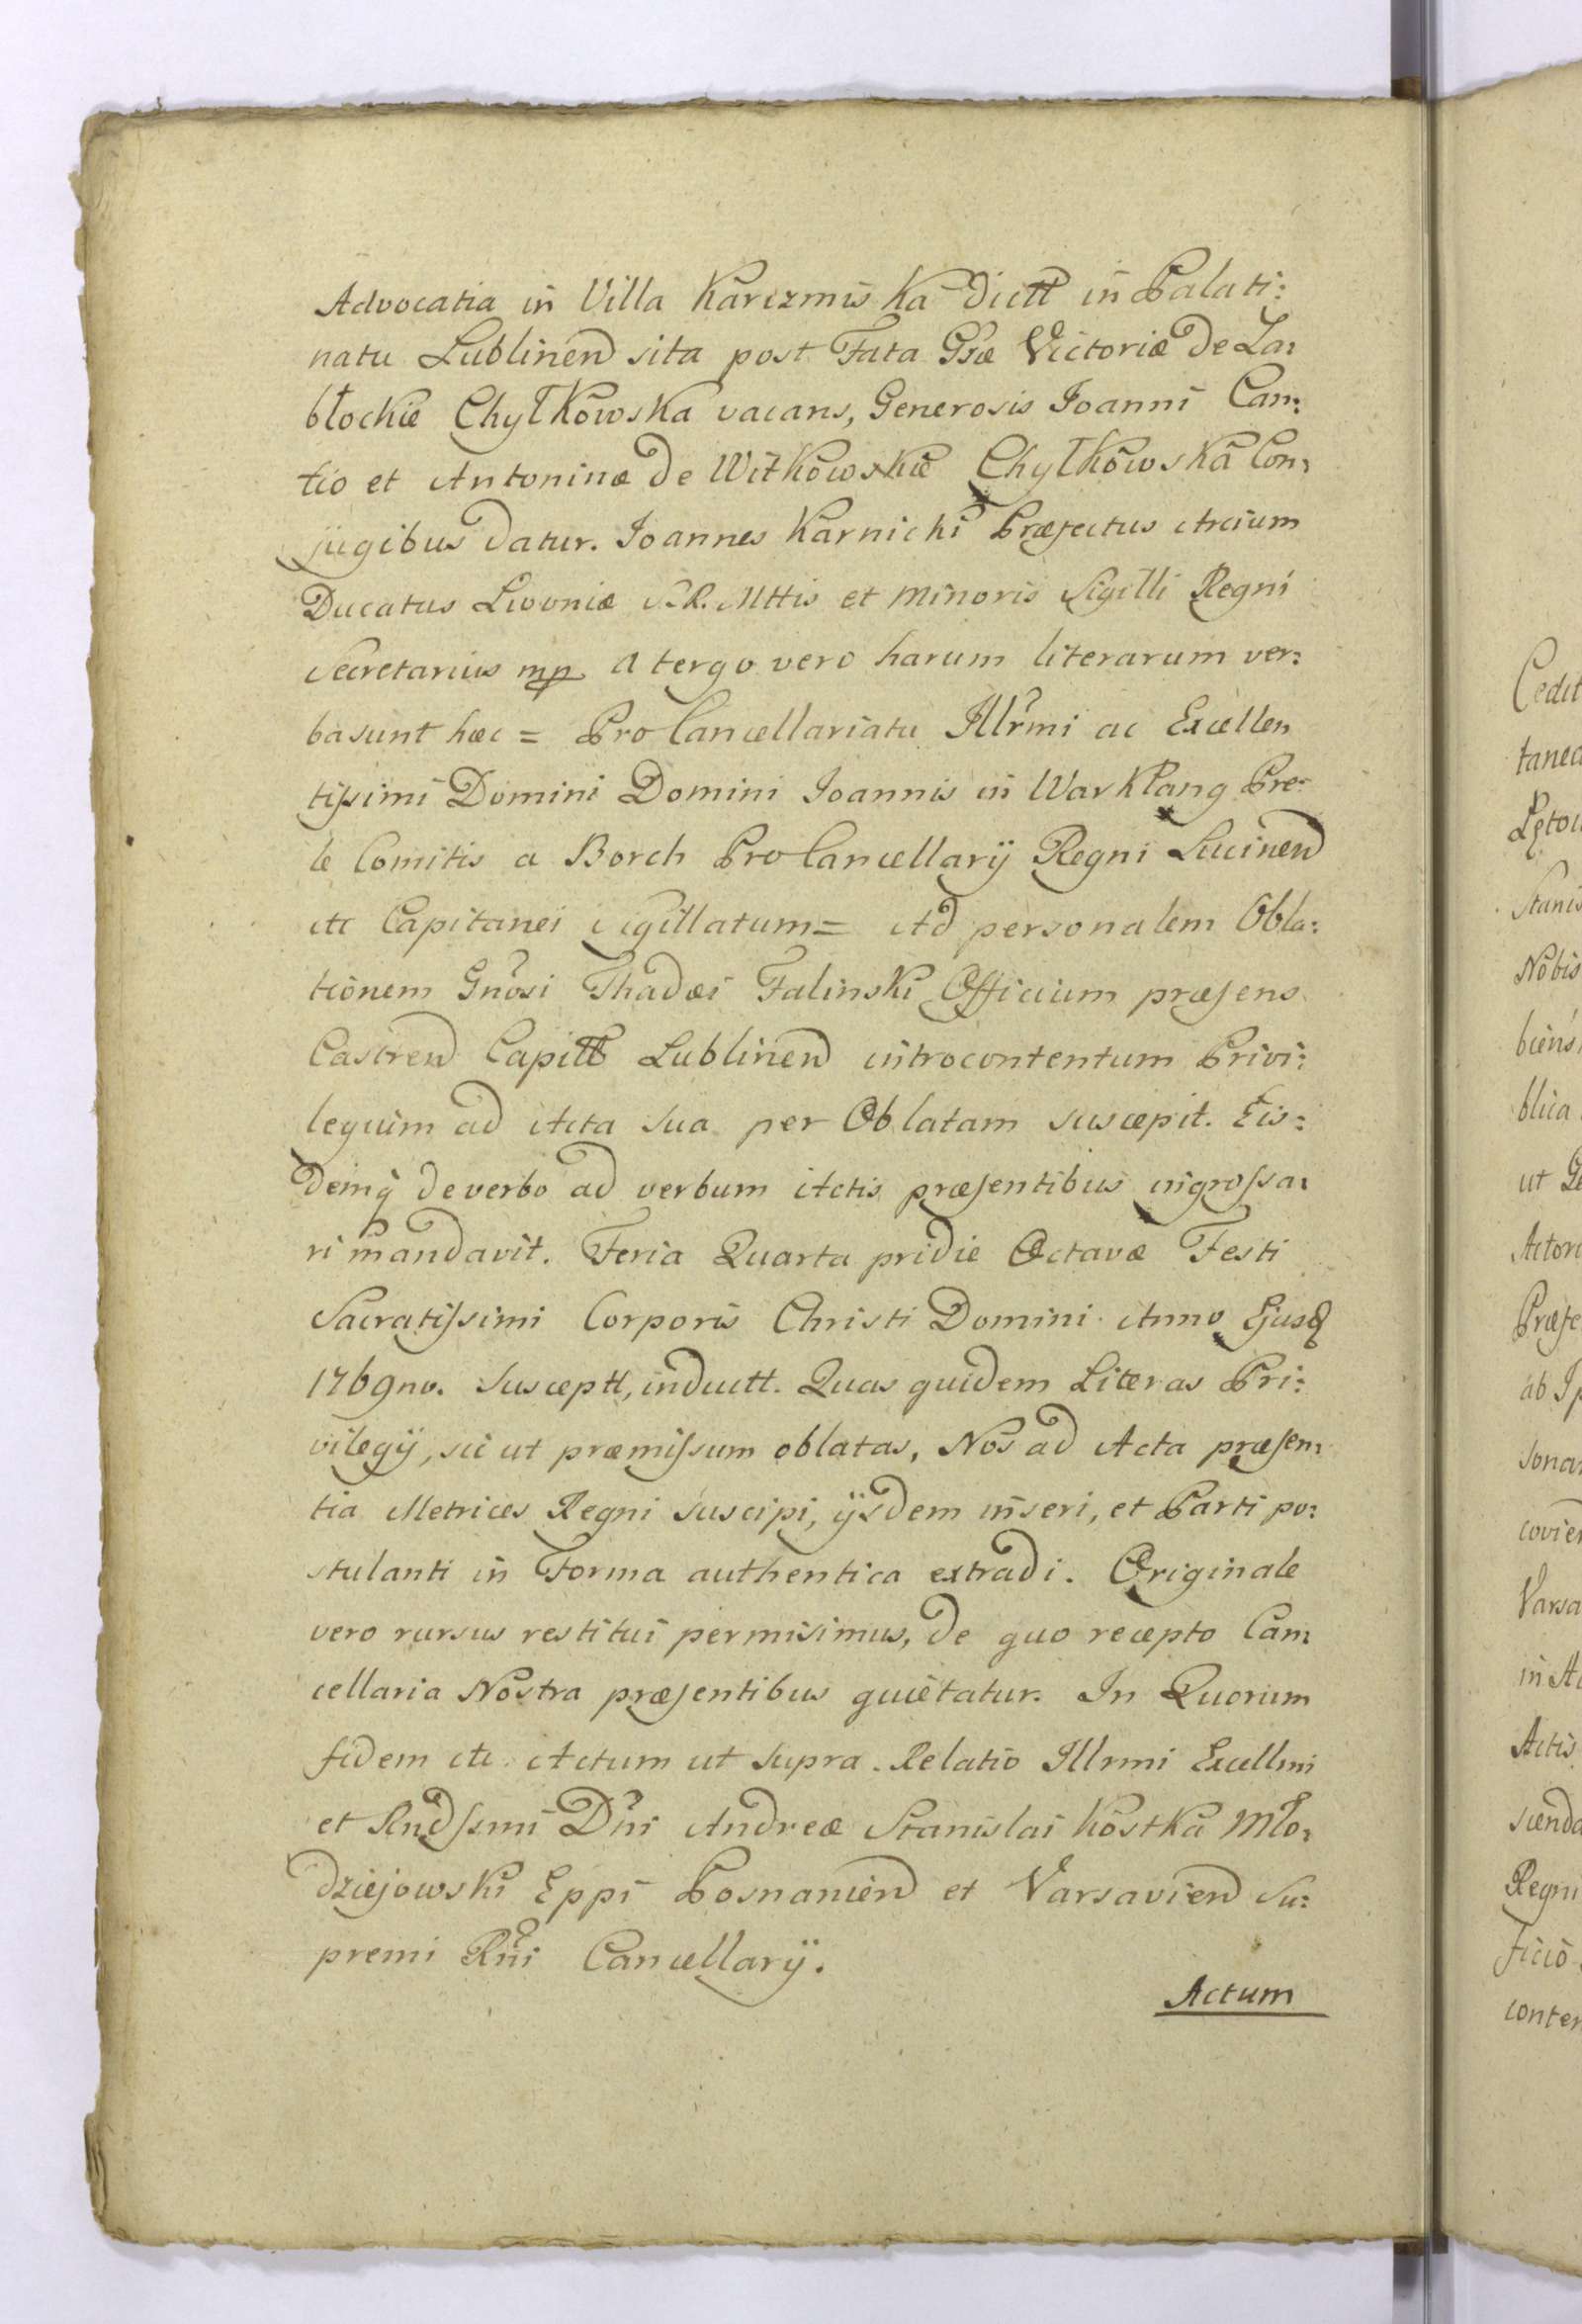 Advocatia in Villa Karczmiska dictt in Palati:
natu Lublinen sita post Fata Gsæ Victoriæ de Za:
błockie Chylkowska vacans, Generosis Joanni Can:
tio et Antoninæ de Witkowskie Chylkowska Con:
jugibus datur. Joannes Karnicki Præfectus Arcium
Ducatus Livoniæ S. R. Mttis et minoris Sigilli Regni
Secretarius mp A tergo vero harum literarum ver:
ba sunt hæc = Pro Cancellariatu Illrmi ac Excellen
tissimi Domini Domini Joannis in Warklang Pre:
le Comitis a Borch Pro Cancellarij Regni Lucinen
etc Capitanei Sigillatum = Ad personalem Obla:
tionem Gnosi Thadæi Falinski Officium præsens
Castren Capitt Lublinen introcontentum Privi:
legium ad Acta sua per Oblatam suscepit. Eis:
demq̃ de verbo ad verbum Actis præsentibus ingrossa:
ri mandavit. Feria Quarta pridie Octavæ Festi
Sacratissimi Corporis Christi Domini Anno Ejusd
1769no. Susceptt, inductt. Quas quidem Literas Pri:
vilegij, sic ut præmissum oblatas, Nos ad Acta præsen:
tia Metrices Regni suscipi, ijsdem inseri, et Parti po:
stulanti in Forma authentica extradi. Originale
vero rursus restitui permisimus, de quo recepto Can:
cellaria Nostra præsentibus quietatur. In Quorum
fidem etc. Actum ut supra. Relatio Illrmi Excellmi
et Rndssmi Dni Andreæ Stanislai Kostka Mło:
dziejowski Eppi Posnanien et Varsavien Su:
premi Rni Cancellarij.
Actum
Cedit
tanea
Stanis
Nobis
biens
blica
ut Ge
Actor
Præfe
ab Ip
sona
covie
Varsa
in Ac
Actis
scenda
Regni
ficio
conten